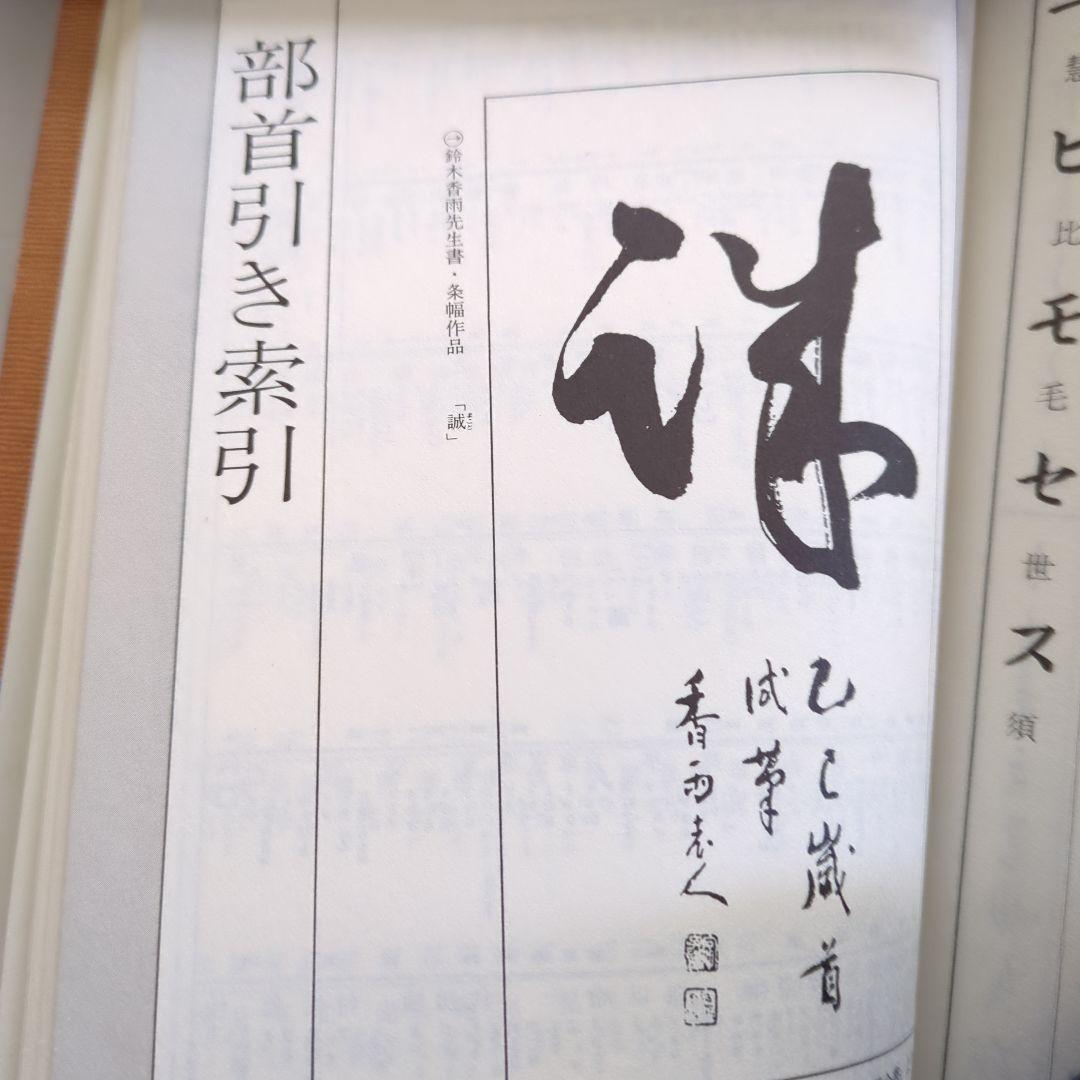 ヒ
比
モ
毛
セ
世
ス
須
誠
乙巳歳首
試筆
香雨老人
→鈴木香雨先生書・条幅作品 「誠」
部首引き索引